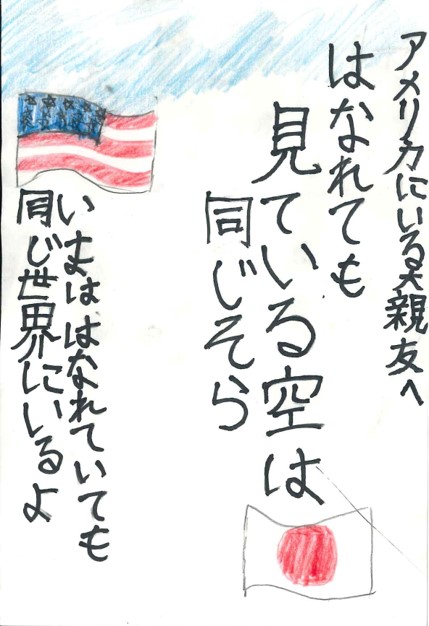 アメリカにいる大親友へ
はなれても
見ている空は
同じそら
いまははなれていても
同じ世界にいるよ